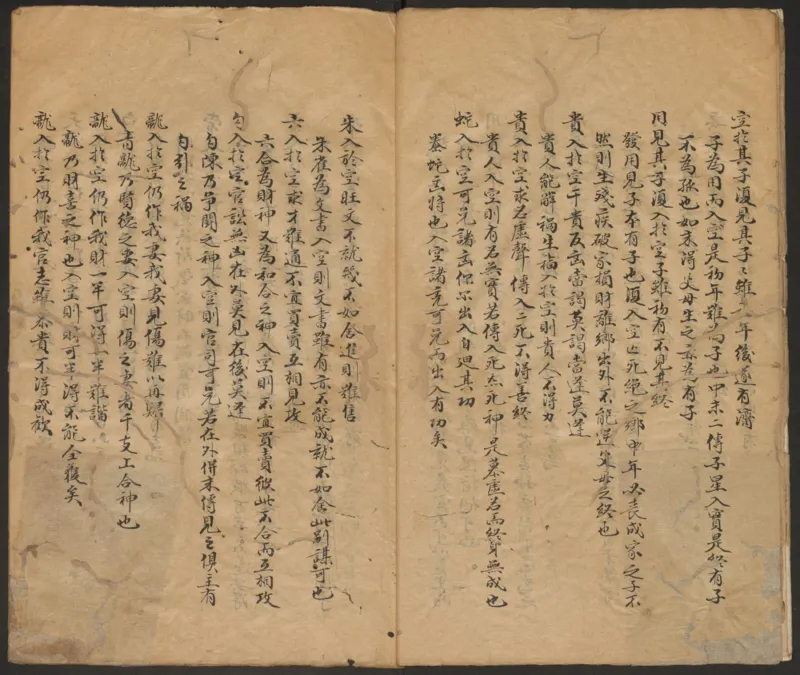 空於其子復見其子子雖少年後遂有濟
子為用而入空是初年難為子也中末二傳子星入實是終有子
不為孤也如末得父母生之亦為有子
用見其子復入於空子雖初有不見其終
發用見子本有子也復入空亡死絕之鄉中年必喪成家之子不
然則生殘疾破家損財離鄉出外不能送父母之終也
貴入於空干貴反交當謁莫謁當逢莫逢
貴人能解禍生福入於空則貴人不得力
貴入於空求名虛聲傳入二死不得善終
貴人入空則有名無實若傳入死炁死神是慕虛名而終身無成也
蛇入於空可免諸凶保爾出入自迎其功
螣蛇凶將也入空諸凶可免而出入有功矣
朱入於空旺文不就幾不如舍進則難售
朱雀為文書入空則文書雖有亦不能成就不如舍此別謀可也
六入於空求才難通不宜買賣互相見攻
六合為財神又為和合之神入空則不宜買賣彼此不合而互相攻
勾入於空官訟無凶在外莫見在後莫逢
勾陳乃爭鬪之神入空則官司可免若在外併末傳見之俱主有
勾引之禍
龍入於空仍作我妻我妻見傷難以再歸
青龍乃賢德之妻入空則傷之妻者干支上合神也
龍入於空仍作我財一半可得一半難諧
龍乃財喜之神也入空則財可半得不能全獲矣
龍入於空仍作我官忘雖恭貴不得成歡